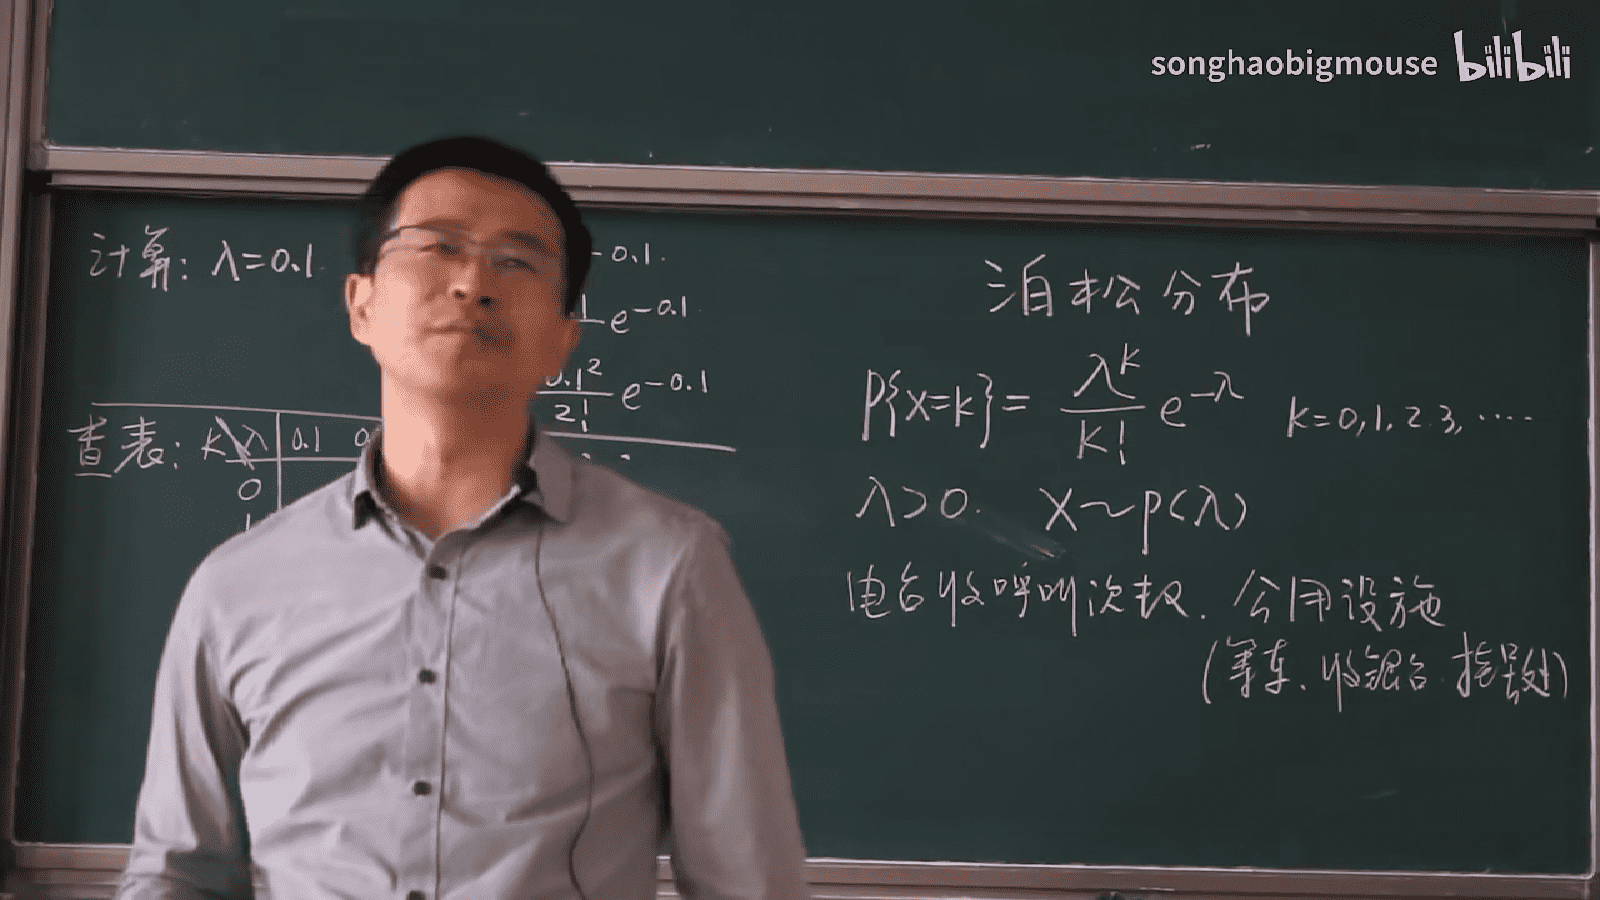 songhaobigmouse bilibili
计算: λ=0.1
-0.1.
e^{-0.1}
\frac{0.1^2}{2!} e^{-0.1}
查表: K λ 0.1 0
0
1
泊松分布
P{X=K} = \frac{λ^K}{K!} e^{-λ} K=0,1,2.3,·····
λ>0. X~P(λ)
电台收呼叫次数. 公用设施
(等车、收银台.挂号处)